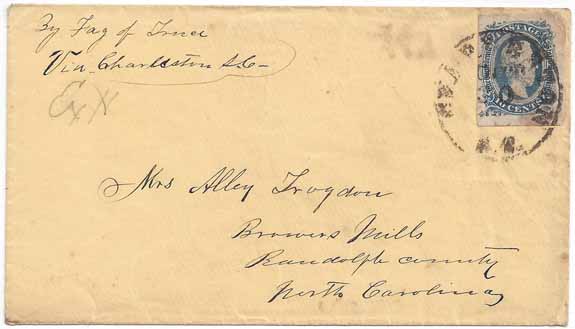 By Fag of Truce
Via Charleston S.C.
Ex
POSTAGE
CENTS
Mrs Alley Trogdon
Browers Mills
Randolph county
North Carolina